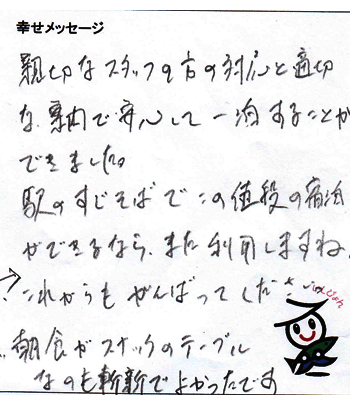 幸せメッセージ
親切なスタッフの方の対応と適切
な案内で安心して一泊することが
できました。
駅のすじそばでこの値段の宿泊
ができるなら、また利用しますね。
これからもがんばってください
朝食がスナックのテーブル
なのも斬新でよかったです